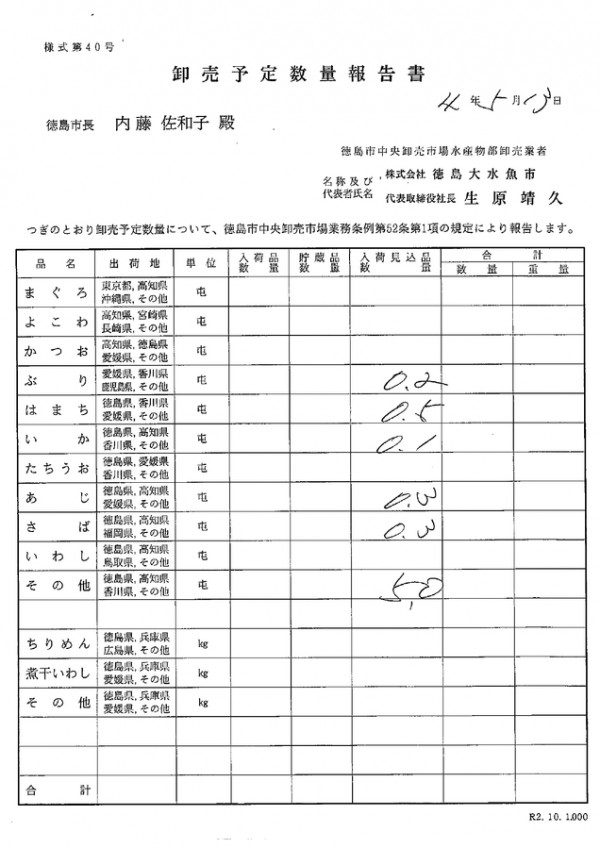 様式第40号
卸売予定数量報告書
4年5月13日
徳島市長 内藤 佐和子 殿
徳島市中央卸売市場水産物部卸売業者
名称及び 株式会社 徳島大水魚市
代表者氏名 代表取締役社長 生原靖久
つぎのとおり卸売予定数量について、徳島市中央卸売市場業務条例第52条第1項の規定により報告します。
品名 出荷地 単位 入荷品数量 貯蔵品数量 入荷見込品数量 合計
数量 重量
まぐろ 東京都,高知県 沖縄県,その他 屯
よこわ 高知県,宮崎県 長崎県,その他 屯
かつお 高知県,徳島県 愛媛県,その他 屯
ぶり 愛媛県,香川県 鹿児島県,その他 屯 0.2
はまち 徳島県,香川県 愛媛県,その他 屯 0.5
いか 徳島県,高知県 香川県,その他 屯 0.1
たちうお 徳島県,愛媛県 香川県,その他 屯
あじ 徳島県,高知県 愛媛県,その他 屯 0.3
さば 徳島県,高知県 福岡県,その他 屯 0.3
いわし 徳島県,高知県 鳥取県,その他 屯
その他 徳島県,高知県 香川県,その他 屯 5.0
ちりめん 徳島県,兵庫県 広島県,その他 kg
煮干いわし 徳島県,兵庫県 愛媛県,その他 kg
その他 徳島県,兵庫県 愛媛県,その他 kg
合計
R2.10.1.000